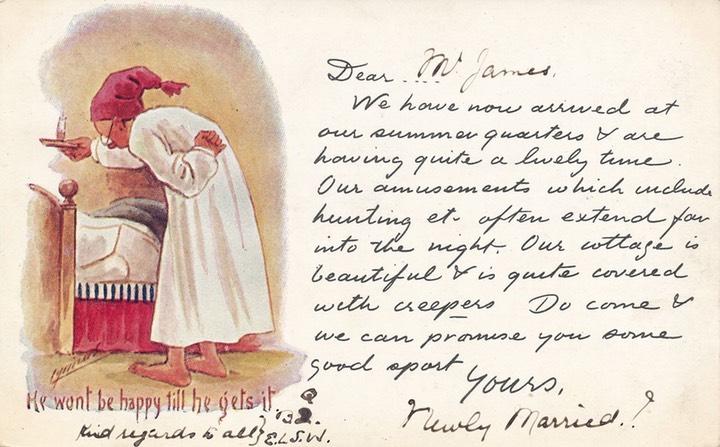 Dear ... Mr James,
We have now arrived at
our summer quarters & are
having quite a lively time.
Our amusements which include
hunting et. often extend far
into the night. Our cottage is
beautiful & is quite covered
with creepers Do come &
we can promise you some
good sport
Yours,
Newly Married.!
He wont be happy till he gets it
Kind regards to all} E.L.S.W.